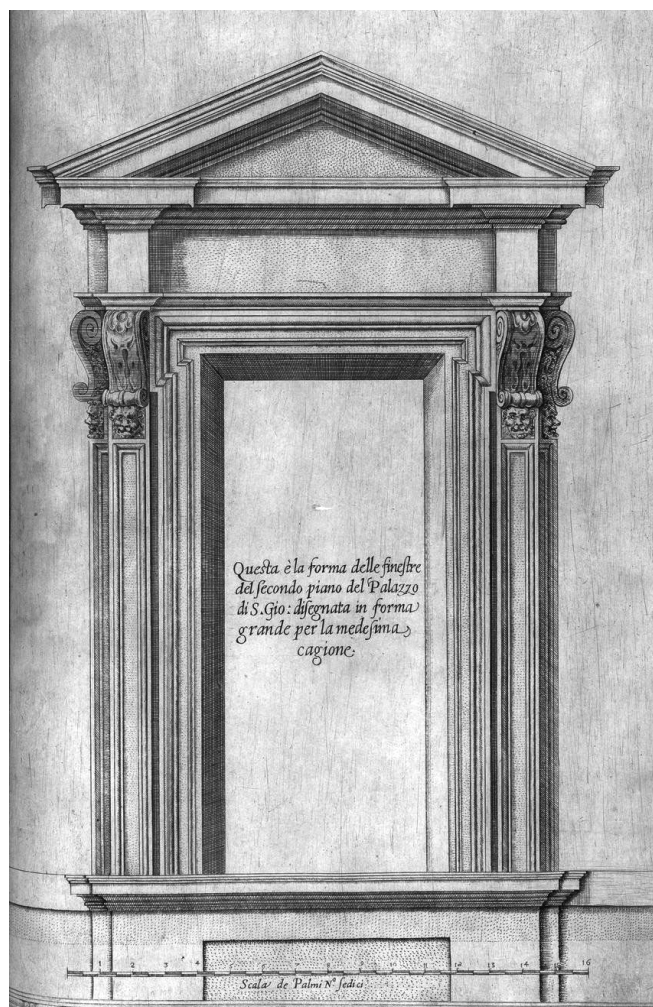 Questa è la forma delle finestre
del secondo piano del Palazzo
di S. Gio: disegnata in forma
grande per la medesima
cagione.
1 2 3 4 5 6 7 8 9 10 11 12 13 14 15 16
Scala de Palmi N.º sedici